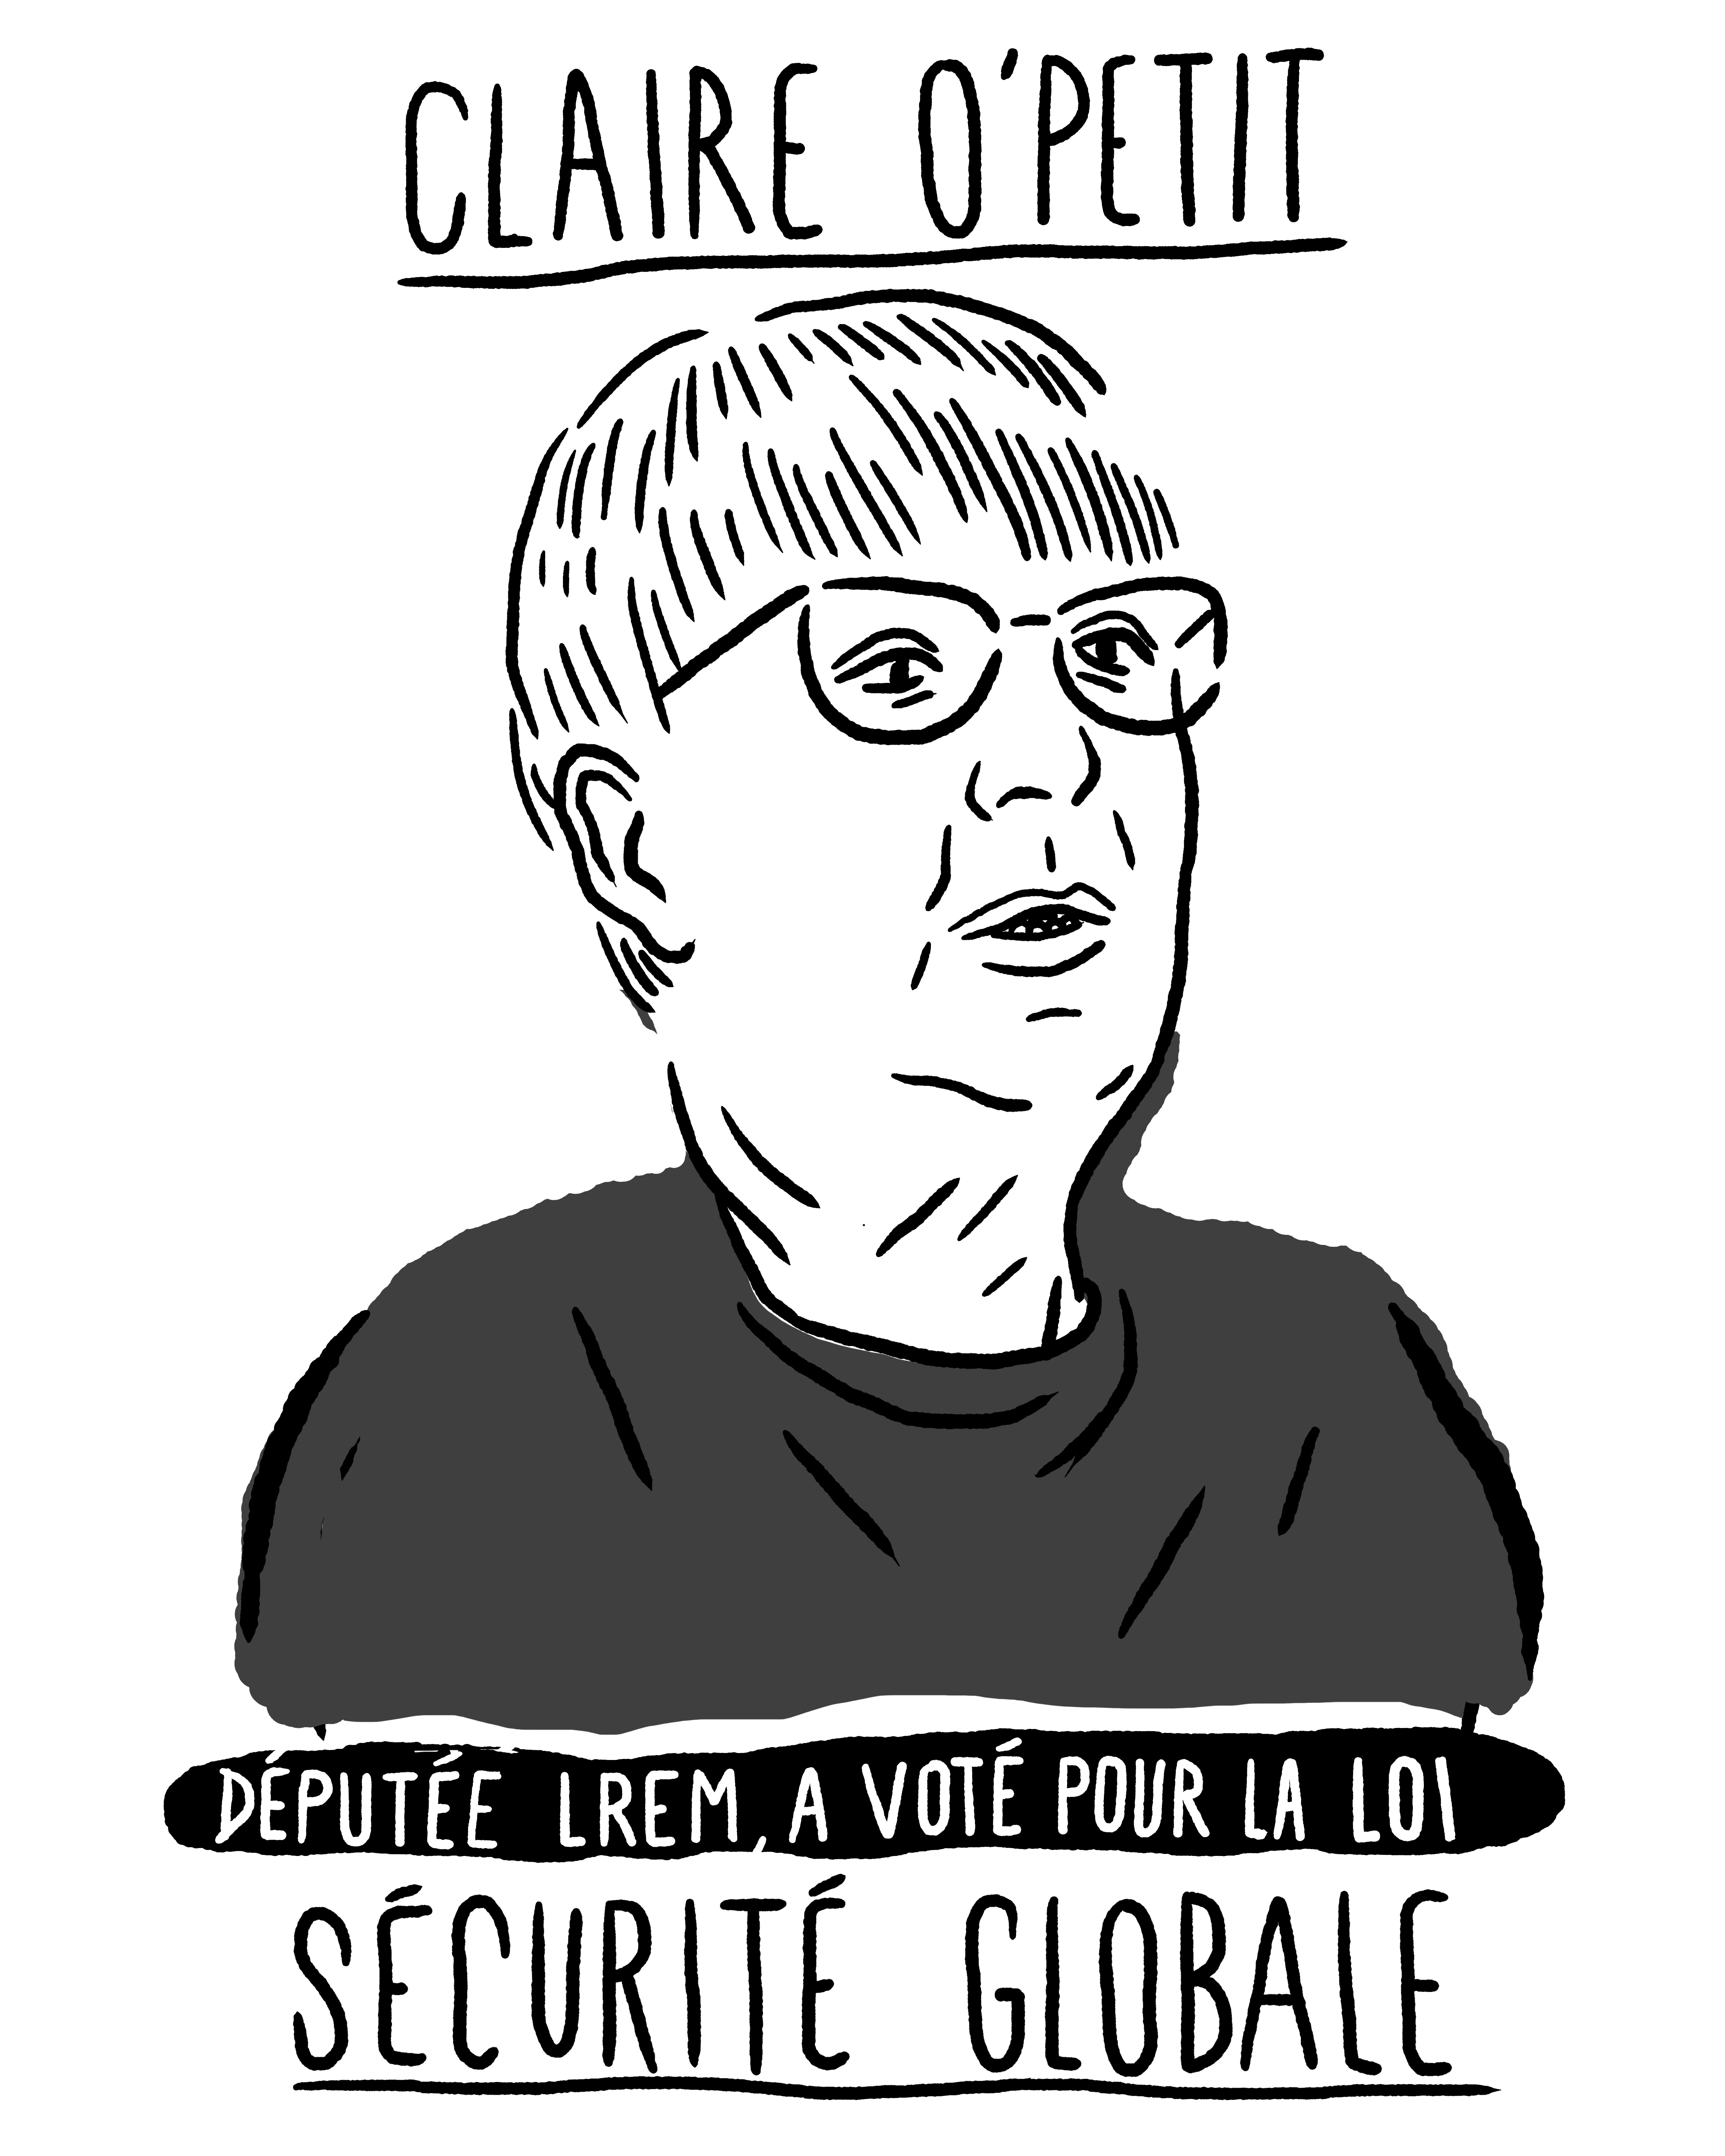 CLAIRE O'PETIT
DÉPUTÉE LREM, A VOTÉ POUR LA LOI
SÉCURITÉ GLOBALE